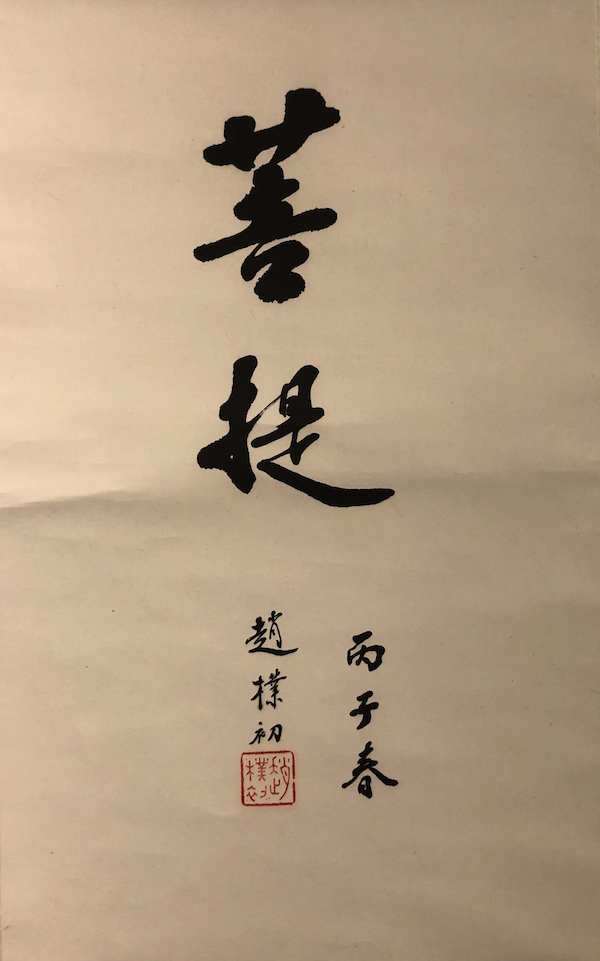 菩提
丙子春
趙樸初
趙樸初